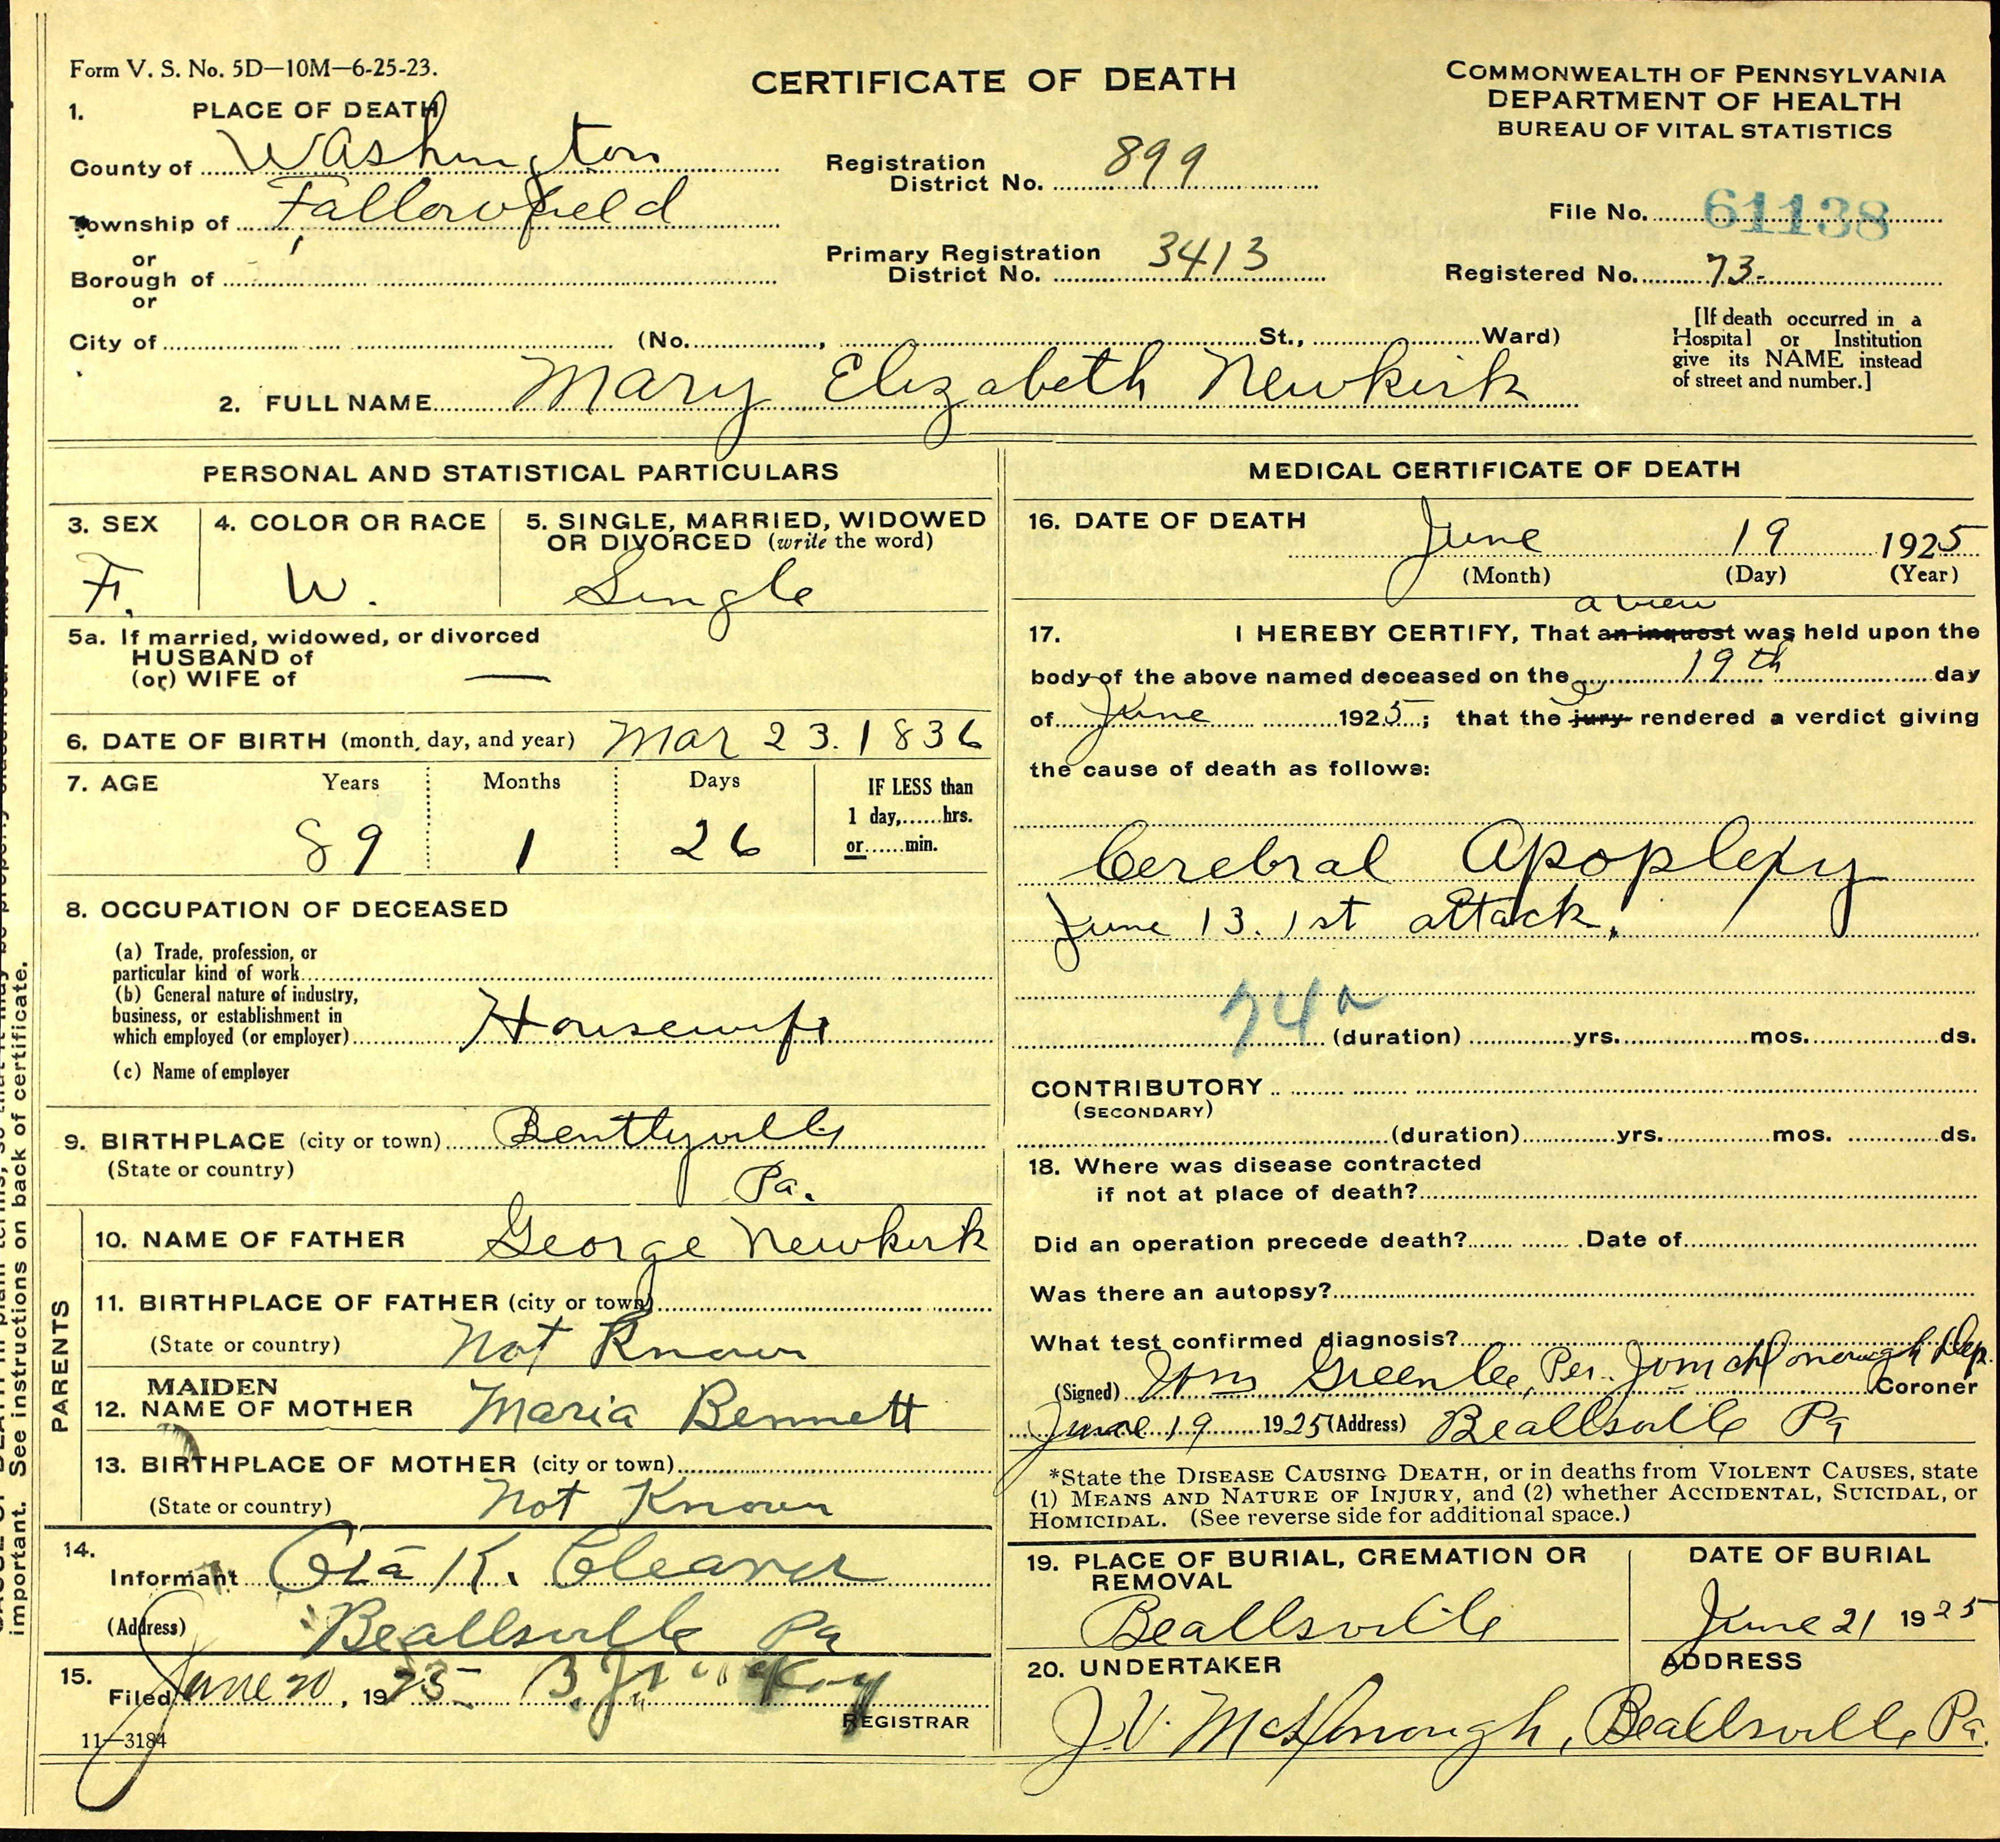 Form V. S. No. 5D—10M—6-25-23.
CERTIFICATE OF DEATH
COMMONWEALTH OF PENNSYLVANIA
DEPARTMENT OF HEALTH
BUREAU OF VITAL STATISTICS
1. PLACE OF DEATH
County of Washington
Township of Fallowfield
or
Borough of
or
City of (No. , St., Ward)
Registration District No. 899
Primary Registration District No. 3413
File No. 61138
Registered No. 73-
[If death occurred in a
Hospital or Institution
give its NAME instead
of street and number.]
2. FULL NAME Mary Elizabeth Newkirk
PERSONAL AND STATISTICAL PARTICULARS
3. SEX
F.
4. COLOR OR RACE
W.
5. SINGLE, MARRIED, WIDOWED
OR DIVORCED (write the word)
Single
5a. If married, widowed, or divorced
HUSBAND of
(or) WIFE of —
6. DATE OF BIRTH (month, day, and year) Mar 23. 1836
7. AGE Years Months Days
89 1 26
IF LESS than
1 day,......hrs.
or......min.
8. OCCUPATION OF DECEASED
(a) Trade, profession, or
particular kind of work
(b) General nature of industry,
business, or establishment in
which employed (or employer) Housewife
(c) Name of employer
9. BIRTHPLACE (city or town) Bentleyville
(State or country) Pa.
PARENTS
10. NAME OF FATHER George Newkirk
11. BIRTHPLACE OF FATHER (city or town)
(State or country) Not Known
MAIDEN
12. NAME OF MOTHER Maria Bennett
13. BIRTHPLACE OF MOTHER (city or town)
(State or country) Not Known
14.
Informant K. Cleaver
(Address) Beallsville Pa
15.
Filed June 20, 1925
REGISTRAR
11—3184
MEDICAL CERTIFICATE OF DEATH
16. DATE OF DEATH June 19 1925
(Month) (Day) (Year)
a view
17. I HEREBY CERTIFY, That an inquest was held upon the
body of the above named deceased on the 19th day
of June 1925; that the jury rendered a verdict giving
the cause of death as follows:
Cerebral Apoplexy
June 13. 1st attack.
74a
(duration) yrs. mos. ds.
CONTRIBUTORY
(SECONDARY)
(duration) yrs. mos. ds.
18. Where was disease contracted
if not at place of death?
Did an operation precede death? Date of
Was there an autopsy?
What test confirmed diagnosis?
(Signed) Wm Greenlee, Per. McDonough Dep.
Coroner
June 19 1925 (Address) Beallsville Pa
*State the DISEASE CAUSING DEATH, or in deaths from VIOLENT CAUSES, state
(1) MEANS AND NATURE OF INJURY, and (2) whether ACCIDENTAL, SUICIDAL, or
HOMICIDAL. (See reverse side for additional space.)
19. PLACE OF BURIAL, CREMATION OR
REMOVAL
Beallsville
DATE OF BURIAL
June 21 1925
20. UNDERTAKER
ADDRESS
J.V. McDonough, Beallsville Pa.
important. See instructions on back of certificate.